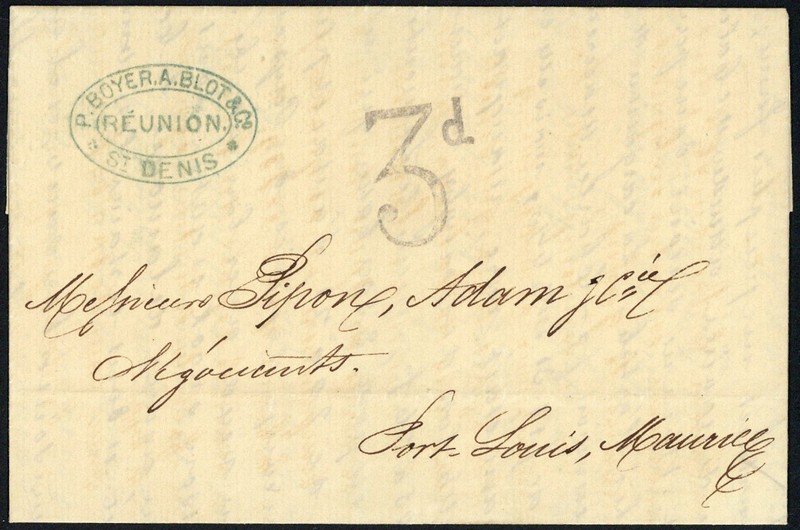 P. BOYER. A. BLOT & Co
RÉUNION.
* ST DENIS *
3d
Messieurs Pipon, Adam & Cie
Négociants.
Port-Louis, Maurice